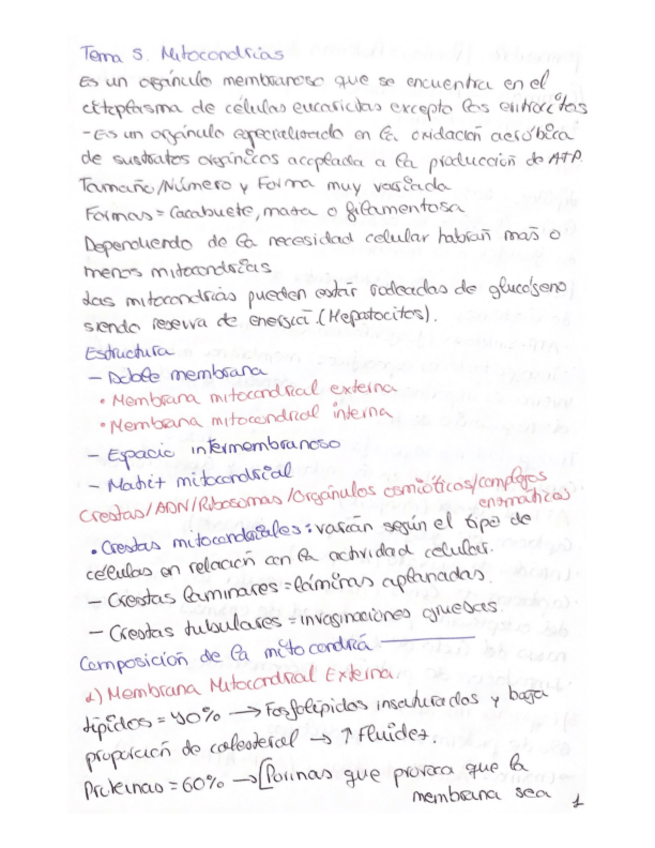 Tema 5. Mitocondrias
Es un orgánulo membranoso que se encuentra en el
citoplasma de células eucariotas excepto los eritrocitos
-Es un orgánulo especializado en la oxidación aeróbica
de sustratos orgánicos acoplada a la producción de ATP.
Tamaño/Número y Forma muy variada
Formas = Cacahuete, maza o filamentosa
Dependiendo de la necesidad celular habrán más o
menos mitocondrias
Las mitocondrias pueden estar rodeadas de glucógeno
siendo reserva de energía. (Hepatocitos).
Estructura
- Doble membrana
• Membrana mitocondrial externa
• Membrana mitocondrial interna
- Espacio intermembranoso
- Matriz mitocondrial
Crestas/ADN/Ribosomas/Orgánulos osmióticos/complejos
enzimáticos
• Crestas mitocondriales: varían según el tipo de
células en relación con la actividad celular.
- Crestas laminares = láminas aplanadas.
- Crestas tubulares = invaginaciones gruesas.
Composición de la mitocondria
1) Membrana Mitocondrial Externa
Lípidos = 40% → Fosfolípidos insaturados y baja
proporción de colesterol → ↑ Fluidez
Proteínas = 60% → [Porinas que provoca que la
membrana sea
1